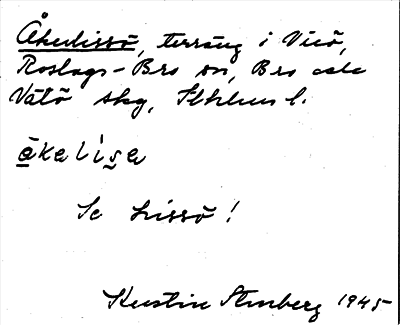 Åkerlissö, terräng i Vicö,
Roslags-Bro sn, Bro och
Vätö skg, Sthlms l.
åkalisa
Se Lissö!
Kerstin Stenberg 1945